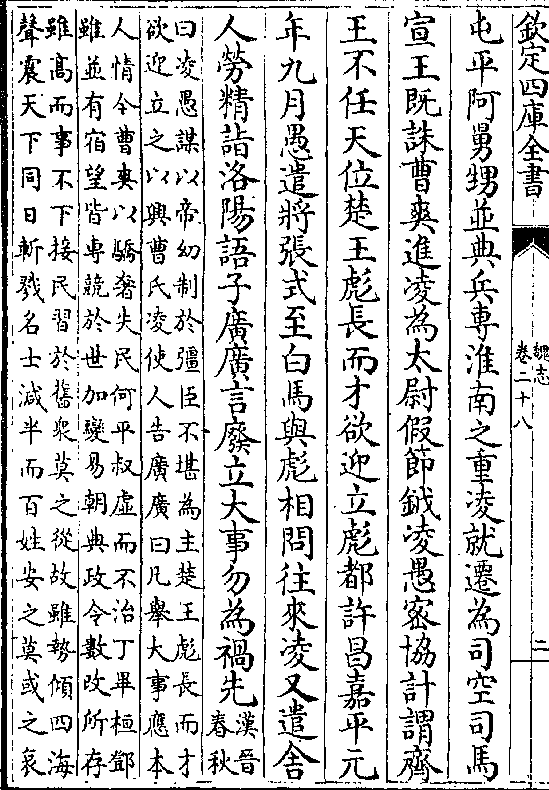 欽定四庫全書
魏志
卷二十八
二
屯平阿舅甥並典兵專淮南之重凌就遷為司空司馬
宣王既誅曹爽進凌為太尉假節鉞凌愚密協計謂齊
王不任天位楚王彪長而才欲迎立彪都許昌嘉平元
年九月愚遣將張式至白馬與彪相問往來凌又遣舍
人勞精詣洛陽語子廣廣言廢立大事勿為禍先
漢晉
春秋
曰凌愚謀以帝幼制於彊臣不堪為主楚王彪長而才
欲迎立之以興曹氏凌使人告廣廣曰凡舉大事應本
人情今曹爽以驕奢失民何平叔虛而不治丁畢桓鄧
雖並有宿望皆專競於世加變易朝典政令數改所存
雖高而事不下接民習於舊衆莫之從故雖勢傾四海
聲震天下同日斬戮名士減半而百姓安之莫或之哀